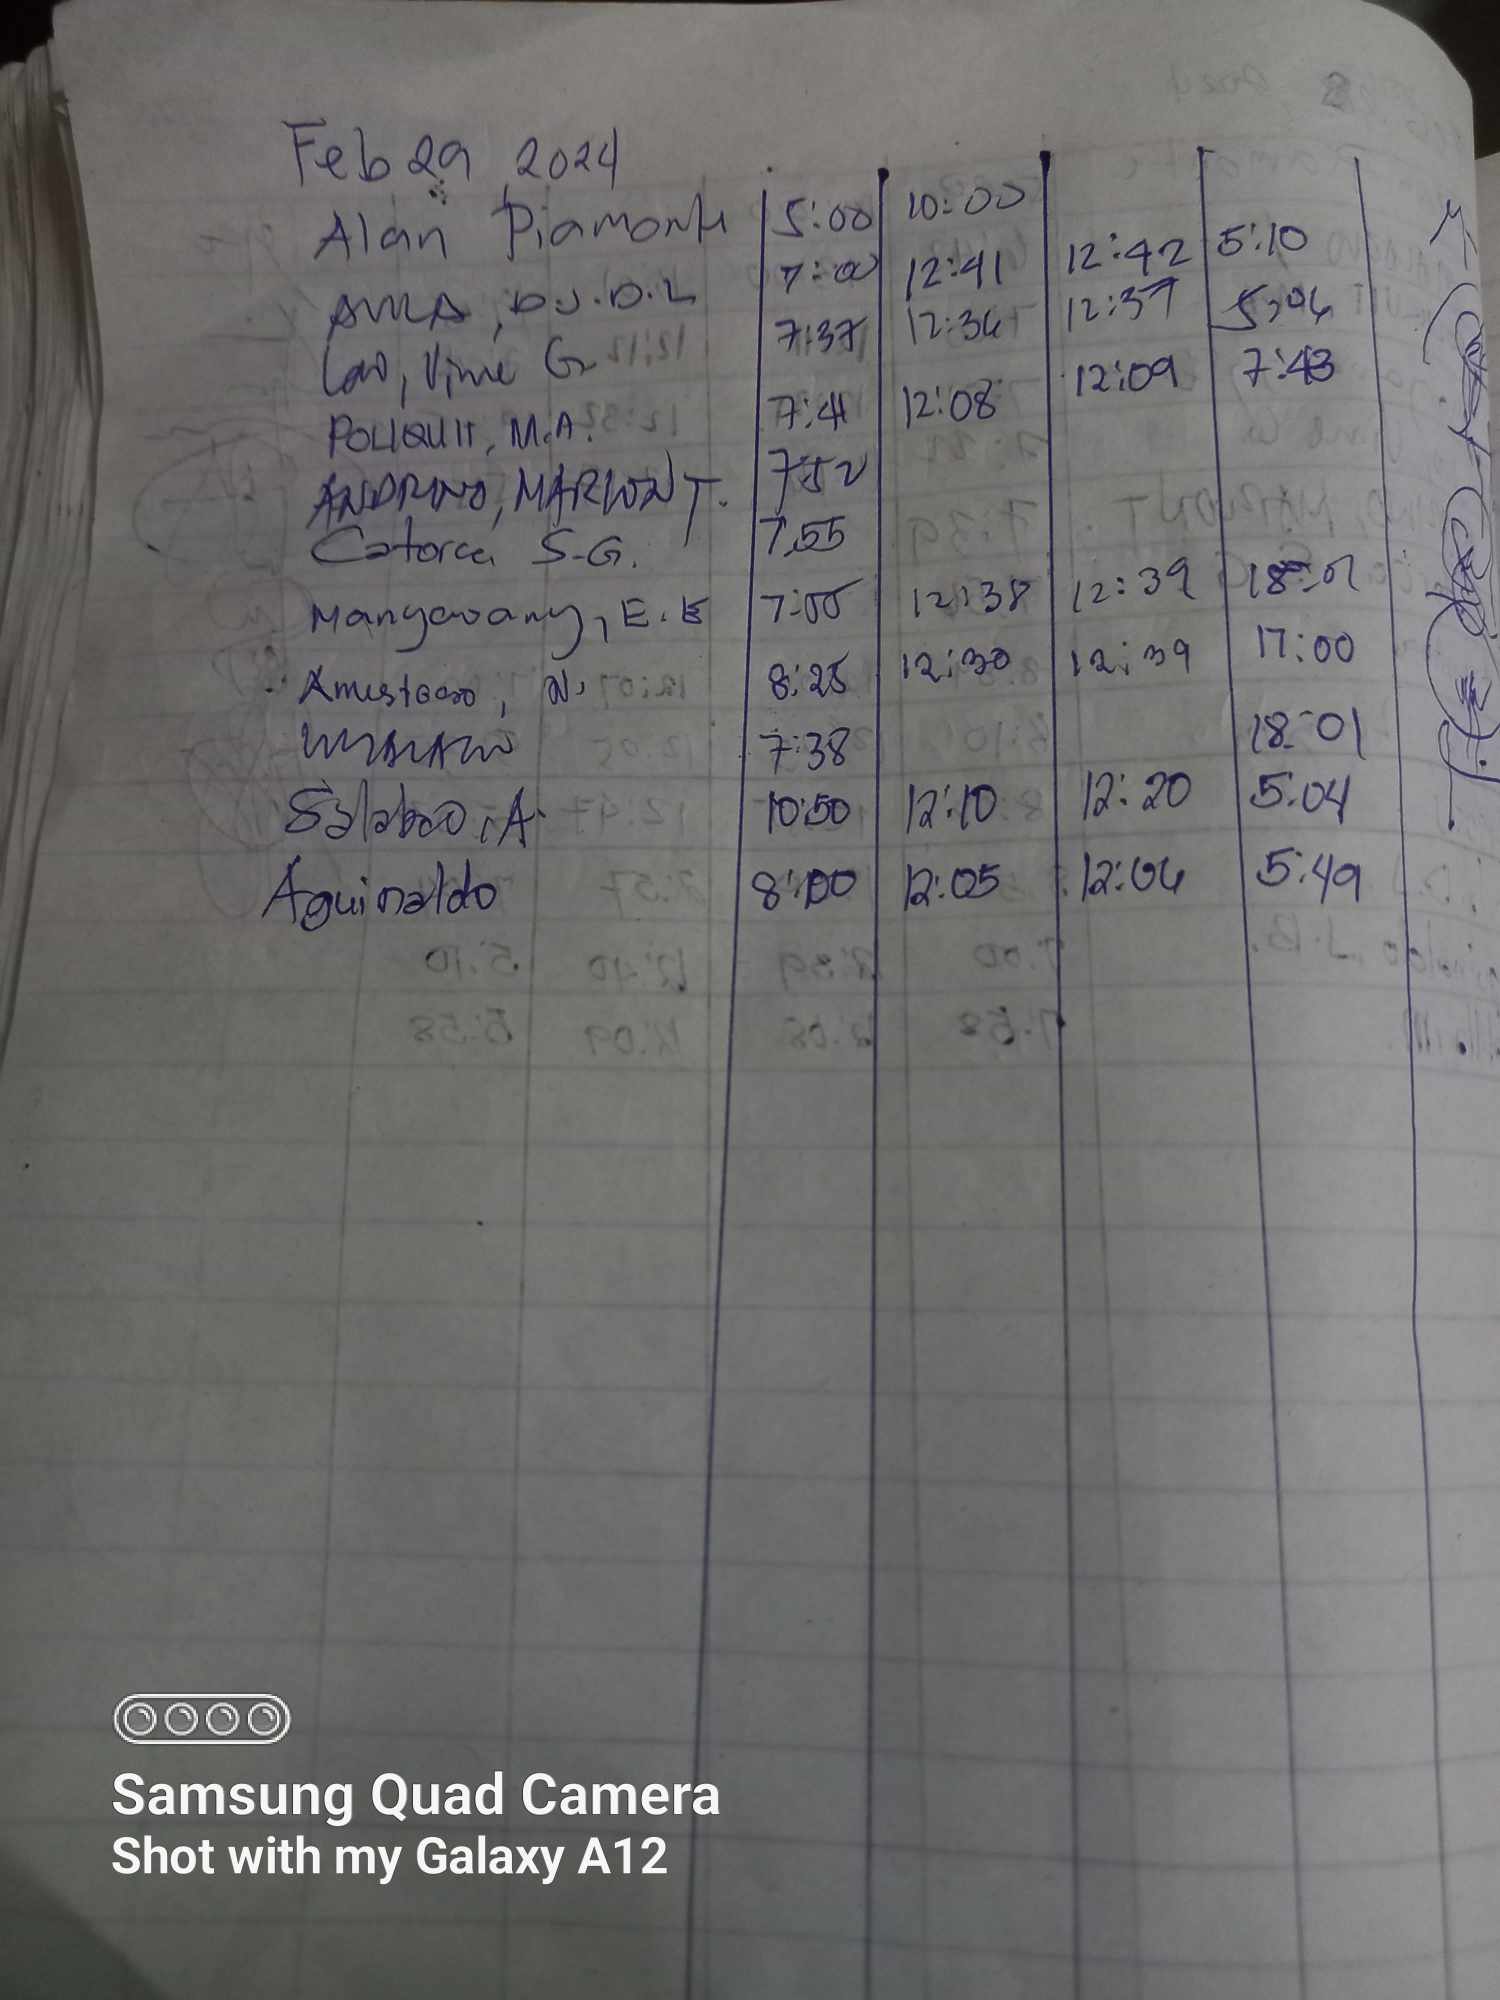 Feb 29 2024
Alan Piamonte 5:00 10:00
7:00 12:41 12:42 5:10
Vime G. 7:37 12:36 12:37 5:06
POLIQUIT, M.A. 7:41 12:08 12:09 7:43
ANDRINO, MARLON T. 7:52
Catorce S-G. 7:55
Mangaoang, E. E 7:55 12:38 12:39 18:01
N. 8:25 12:30 12:39 17:00
7:38 18:01
A. 10:50 12:10 12:20 5:04
Aguinaldo 8:00 12:05 12:06 5:49
Samsung Quad Camera
Shot with my Galaxy A12